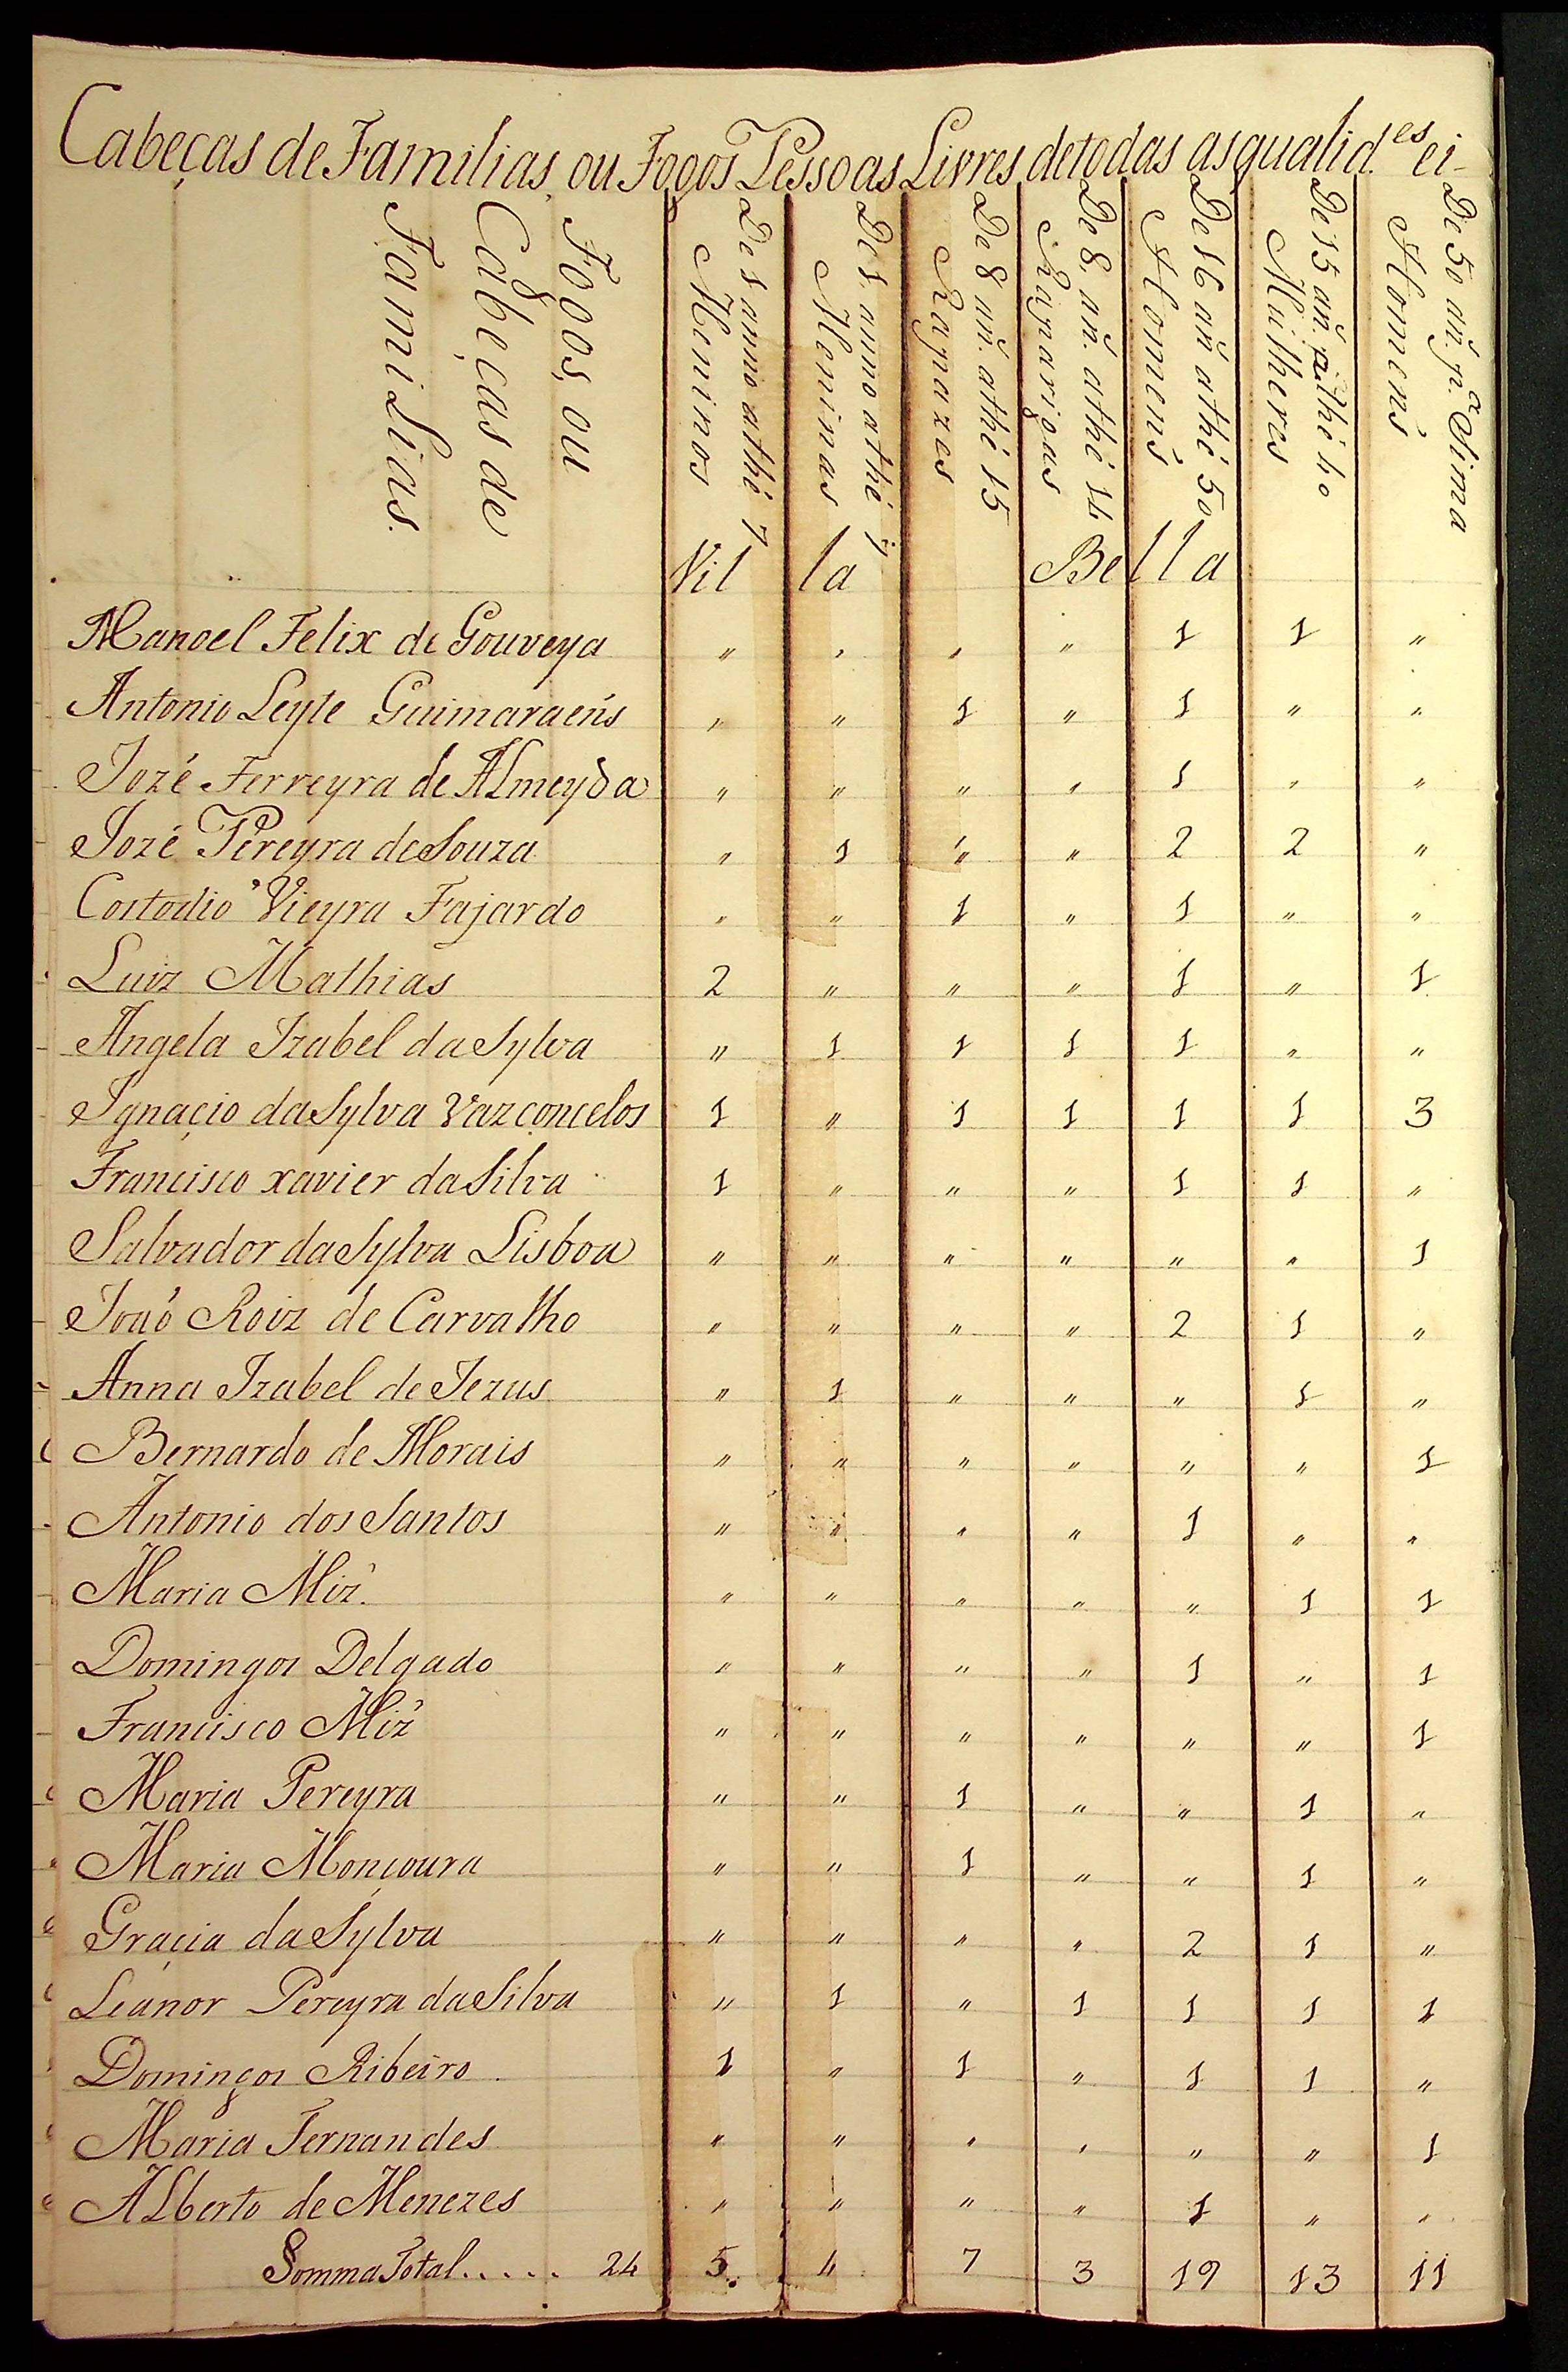 Cabeças de Familias, ou Fogos Pessoas Livres de todas as qualid.es ei-
Fogos, ou
Cabeças de
Familias.
De 1 anno athé 7
Meninos
De 1. anno athé 7
Meninas
De 8 añ. athé 15
Rapazes
De 8. añ. athé 14
Raparigas
De 16 añ athé 50
Homens
De 15 añ. athé 40
Mulheres
De 50 añ. p.a Sima
Homens
Villa Bella
Manoel Felix de Gouveya " , , " 1 1 "
Antonio Leyte Guimaraens " " 1 " 1 " "
Jozé Ferreyra de Almeyda " " " " 1 " "
Jozé Pereyra de Souza " 1 " " 2 2 "
Costodio Vieyra Fajardo " " 1 " 1 " "
Luiz Mathias 2 " " " 1 " 1
Angela Izabel da Sylva " 1 1 1 1 " "
Ignaçio da Sylva Vazconcelos 1 " 1 1 1 1 3
Francisco xavier da Silva 1 " " " 1 1 "
Salvador da Sylva Lisboa " " " " " " 1
João Roiz de Carvalho " " " " 2 1 "
Anna Izabel de Jezus " 1 " " " 1 "
Bernardo de Morais " " " " " " 1
Antonio dos Santos " " " " 1 " "
Maria Miz. " " " " " 1 1
Domingos Delgado " " " " 1 " 1
Francisco Miz " " " " " " 1
Maria Pereyra " " 1 " " 1 "
Maria Monçoura " " 1 " " 1 "
Graçia da Sylva " " " " 2 1 "
Leanor Pereyra da Silva " 1 " 1 1 1 1
Domingos Ribeiro 1 " 1 " 1 1 "
Maria Fernandes " " " , " " 1
Alberto de Menezes " " " " 1 " "
Somma Total..... 24 5 4 7 3 19 13 11